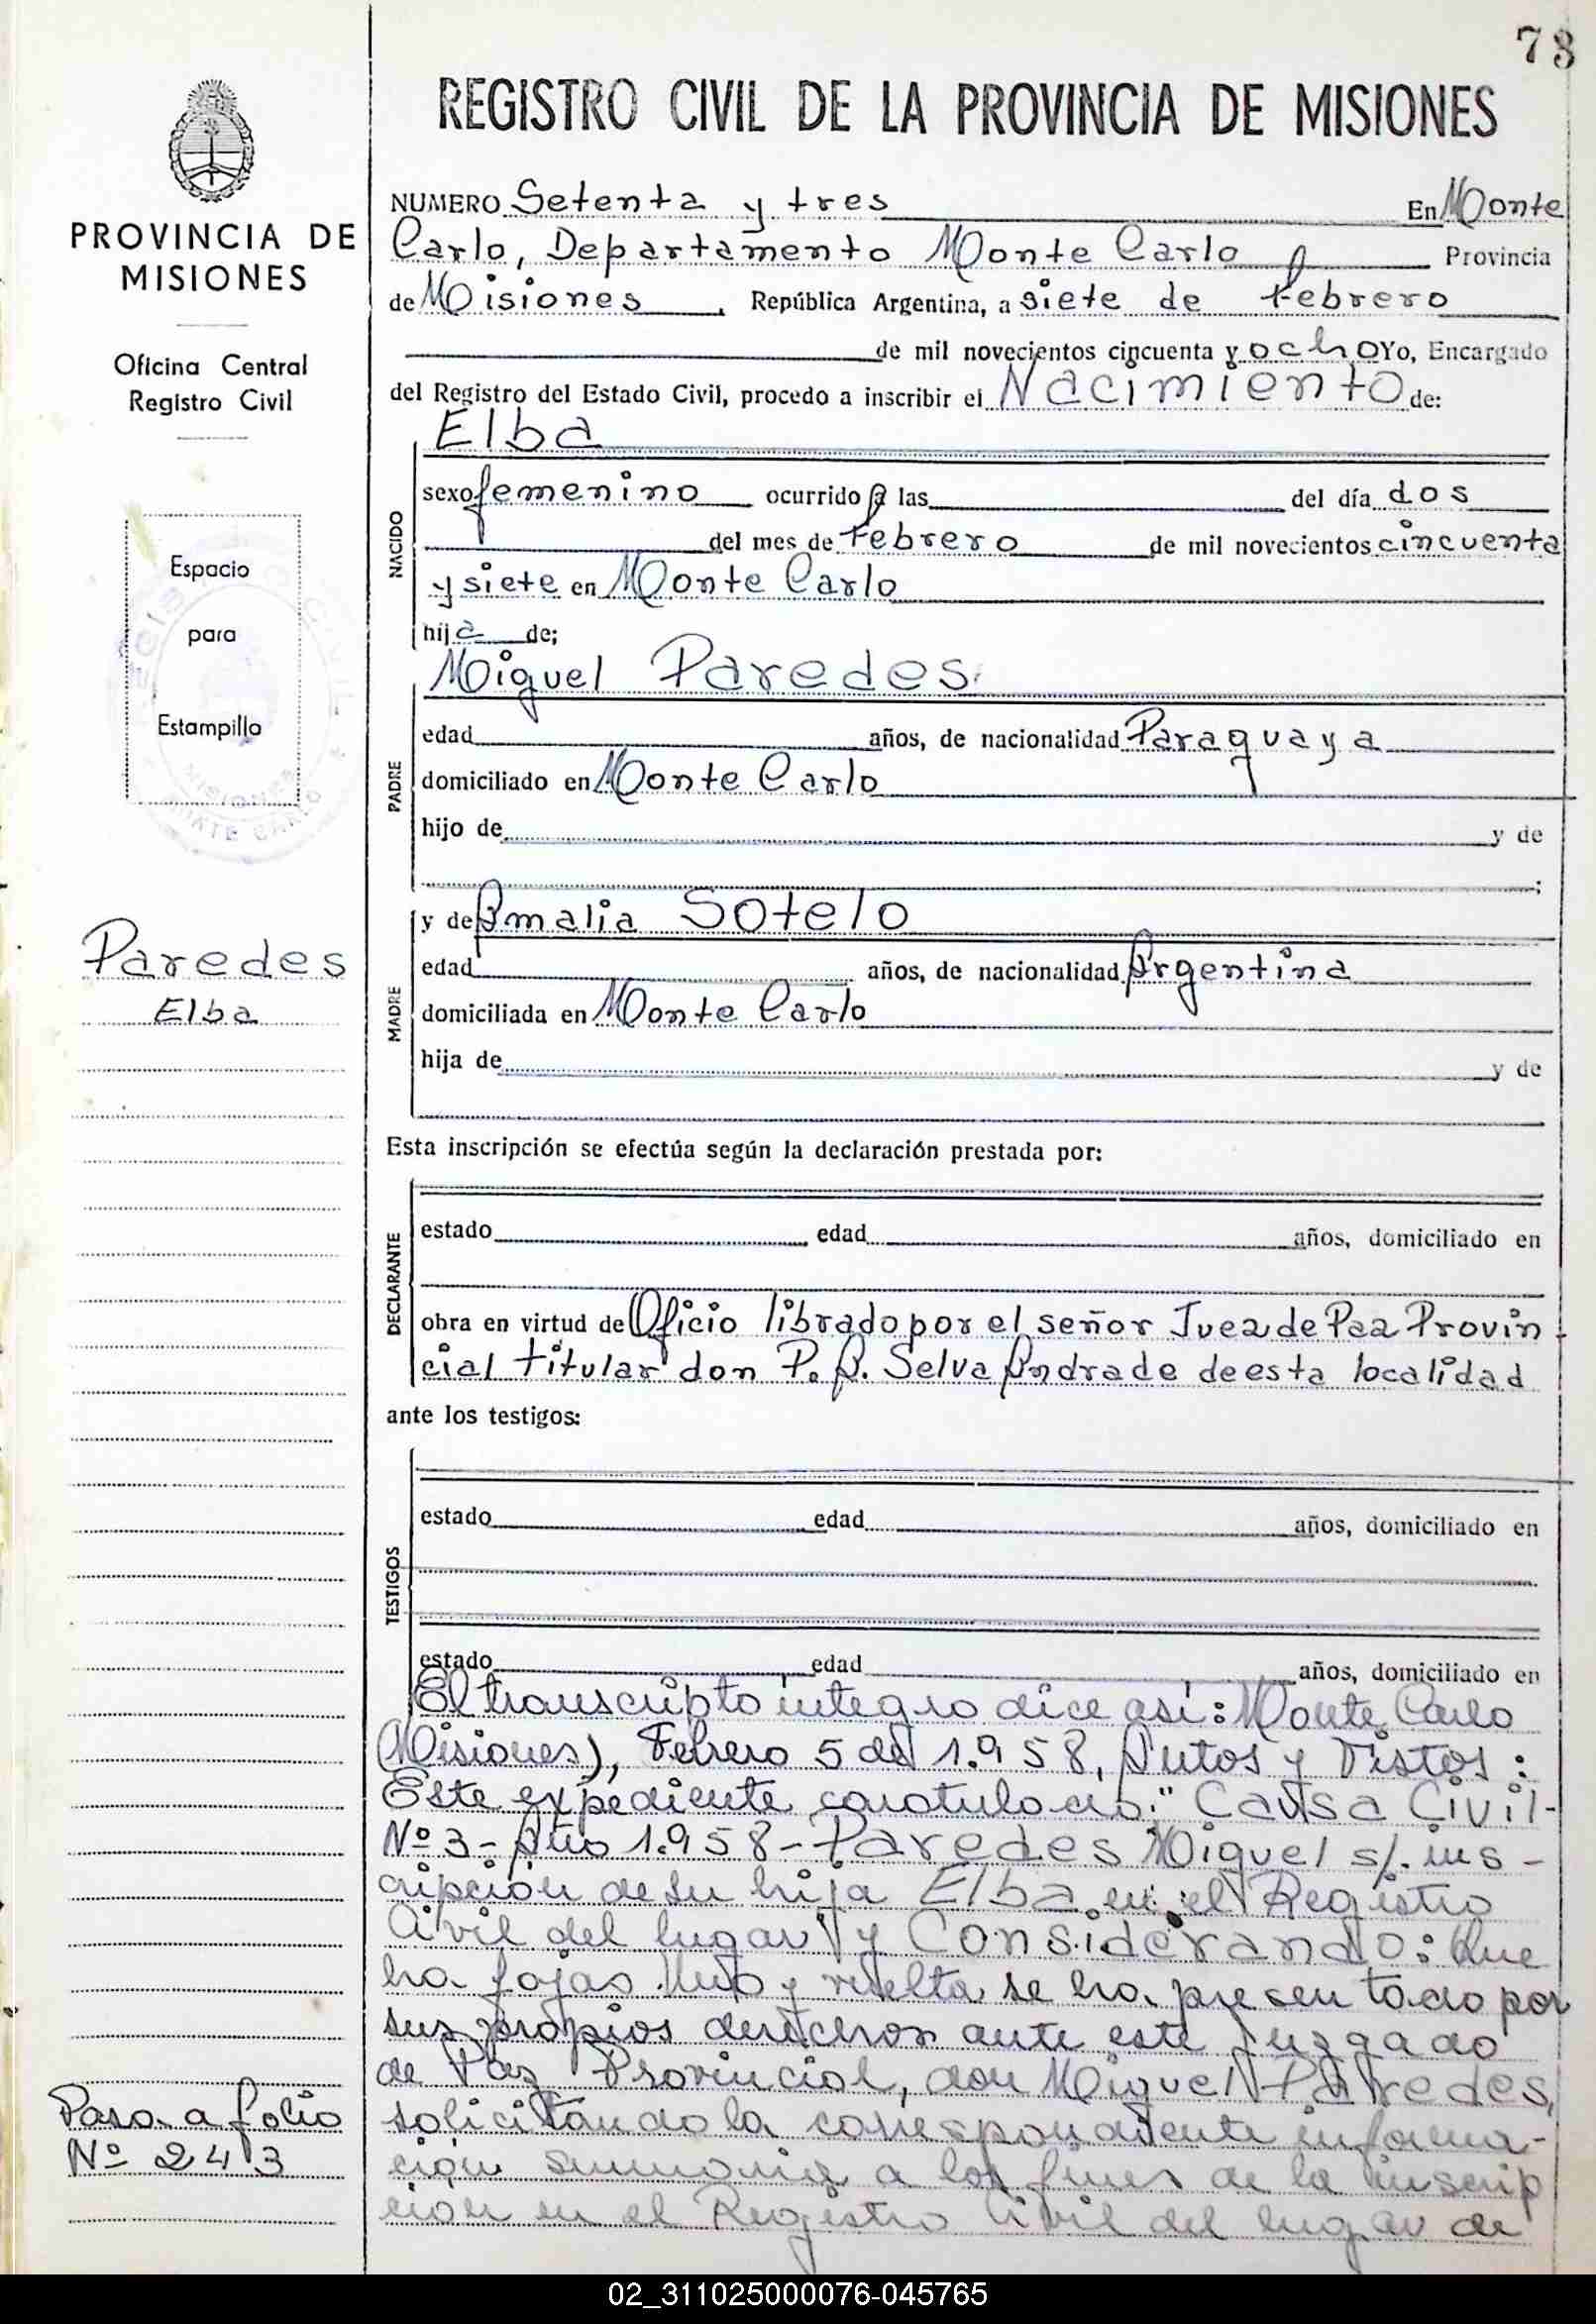 73
REGISTRO CIVIL DE LA PROVINCIA DE MISIONES
PROVINCIA DE
MISIONES
Oficina Central
Registro Civil
Espacio
para
Estampilla
Paredes
Elba
Paso a folio
Nº 243
NUMERO Setenta y tres En Monte
Carlo, Departamento Monte Carlo Provincia
de Misiones, República Argentina, a siete de febrero
de mil novecientos cincuenta y ocho Yo, Encargado
del Registro del Estado Civil, procedo a inscribir el Nacimiento de:
NACIDO
Elba
sexo femenino ocurrido a las del día dos
del mes de febrero de mil novecientos cincuenta
y siete en Monte Carlo
hija de;
PADRE
Miguel Paredes
edad años, de nacionalidad Paraguaya
domiciliado en Monte Carlo
hijo de y de
;
MADRE
y de Amalia Sotelo
edad años, de nacionalidad Argentina
domiciliada en Monte Carlo
hija de y de
Esta inscripción se efectúa según la declaración prestada por:
DECLARANTE
estado edad años, domiciliado en
obra en virtud de Oficio librado por el señor Juez de Paz Provin
cial titular don P. A. Selva Andrade de esta localidad
ante los testigos:
TESTIGOS
estado edad años, domiciliado en
estado edad años, domiciliado en
El transcripto integro dice así: Monte Carlo
(Misiones), Febrero 5 de 1.958, Autos y Vistos:
Este expediente caratulado: "Causa Civil-
Nº 3- Año 1.958- Paredes Miguel s/. ins-
cripción de su hija Elba en el Registro
Civil del lugar y Considerando: Que
ha fojas Uno y vuelta se ha presentado por
sus propios derechos ante este Juzgado
de Paz Provincial, don Miguel Paredes,
solicitando la correspondiente informa-
ción sumaria a los fines de la inscrip
ción en el Registro Civil del lugar de
02_311025000076-045765